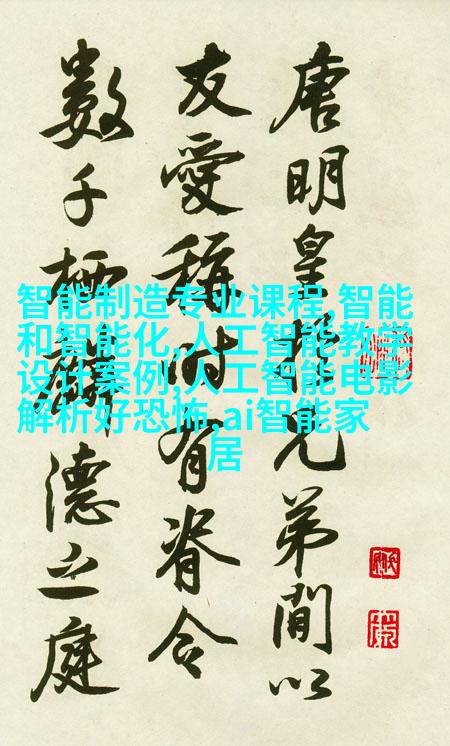 唐明皇扵兄弟間以
友愛稱时有脊令
數千栖麟德之庭
智能制造专业课程,智能
和智能化,人工智能教学
设计案例,人工智能电影
解析好恐怖,ai智能家
居